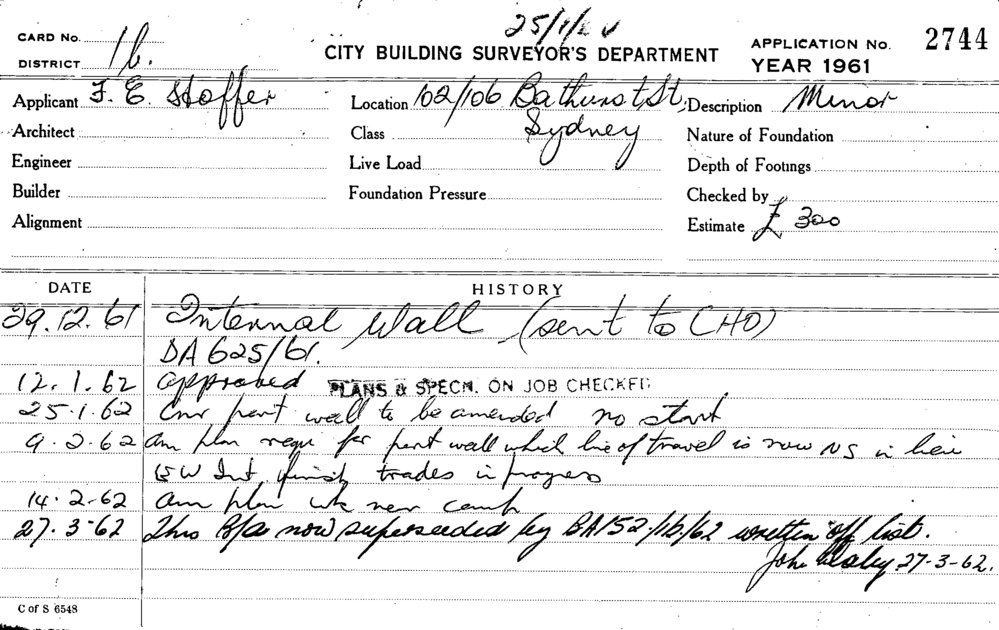 25/1/
CARD No.
DISTRICT 1b.
CITY BUILDING SURVEYOR'S DEPARTMENT
APPLICATION No. 2744
YEAR 1961
Applicant F. E. Stoffer
Location 102/106 Bathurst St, Sydney
Description Minor
Architect
Class
Nature of Foundation
Engineer
Live Load
Depth of Footings
Builder
Foundation Pressure
Checked by
Alignment
Estimate £ 300
DATE HISTORY
29.12.61 Internal Wall (sent to CHO)
DA 625/61.
12.1.62 approved PLANS & SPECN. ON JOB CHECKED
25.1.62 part wall to be amended no start
9.2.62 am plan requ for part wall which line of travel is now NS in lieu
EW Int finish trades in progress
14.2-62 am plan wk near comp
27.3-62 This B/a now superseded by BA152/1b/62 written off list.
John 27-3-62.
C of S 6548